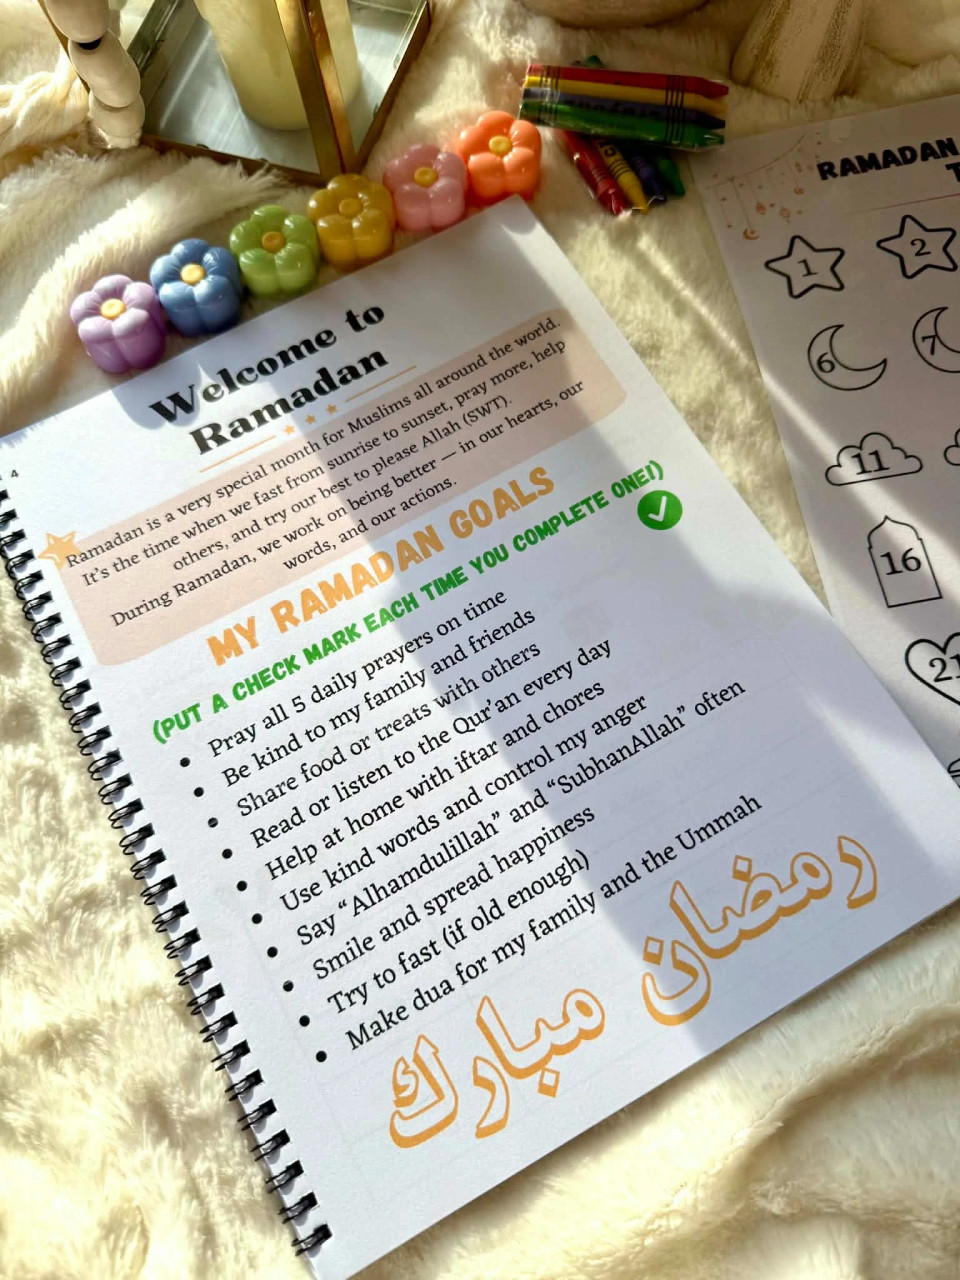 4
Welcome to
Ramadan
Ramadan is a very special month for Muslims all around the world.
It's the time when we fast from sunrise to sunset, pray more, help
others, and try our best to please Allah (SWT).
During Ramadan, we work on being better — in our hearts, our
words, and our actions.
MY RAMADAN GOALS
(PUT A CHECK MARK EACH TIME YOU COMPLETE ONE!)
• Pray all 5 daily prayers on time
• Be kind to my family and friends
• Share food or treats with others
• Read or listen to the Qur'an every day
• Help at home with iftar and chores
• Use kind words and control my anger
• Say “Alhamdulillah” and “SubhanAllah” often
• Smile and spread happiness
• Try to fast (if old enough)
• Make dua for my family and the Ummah
رمضان مبارك
RAMADAN
1 2
6 7
11
16
21